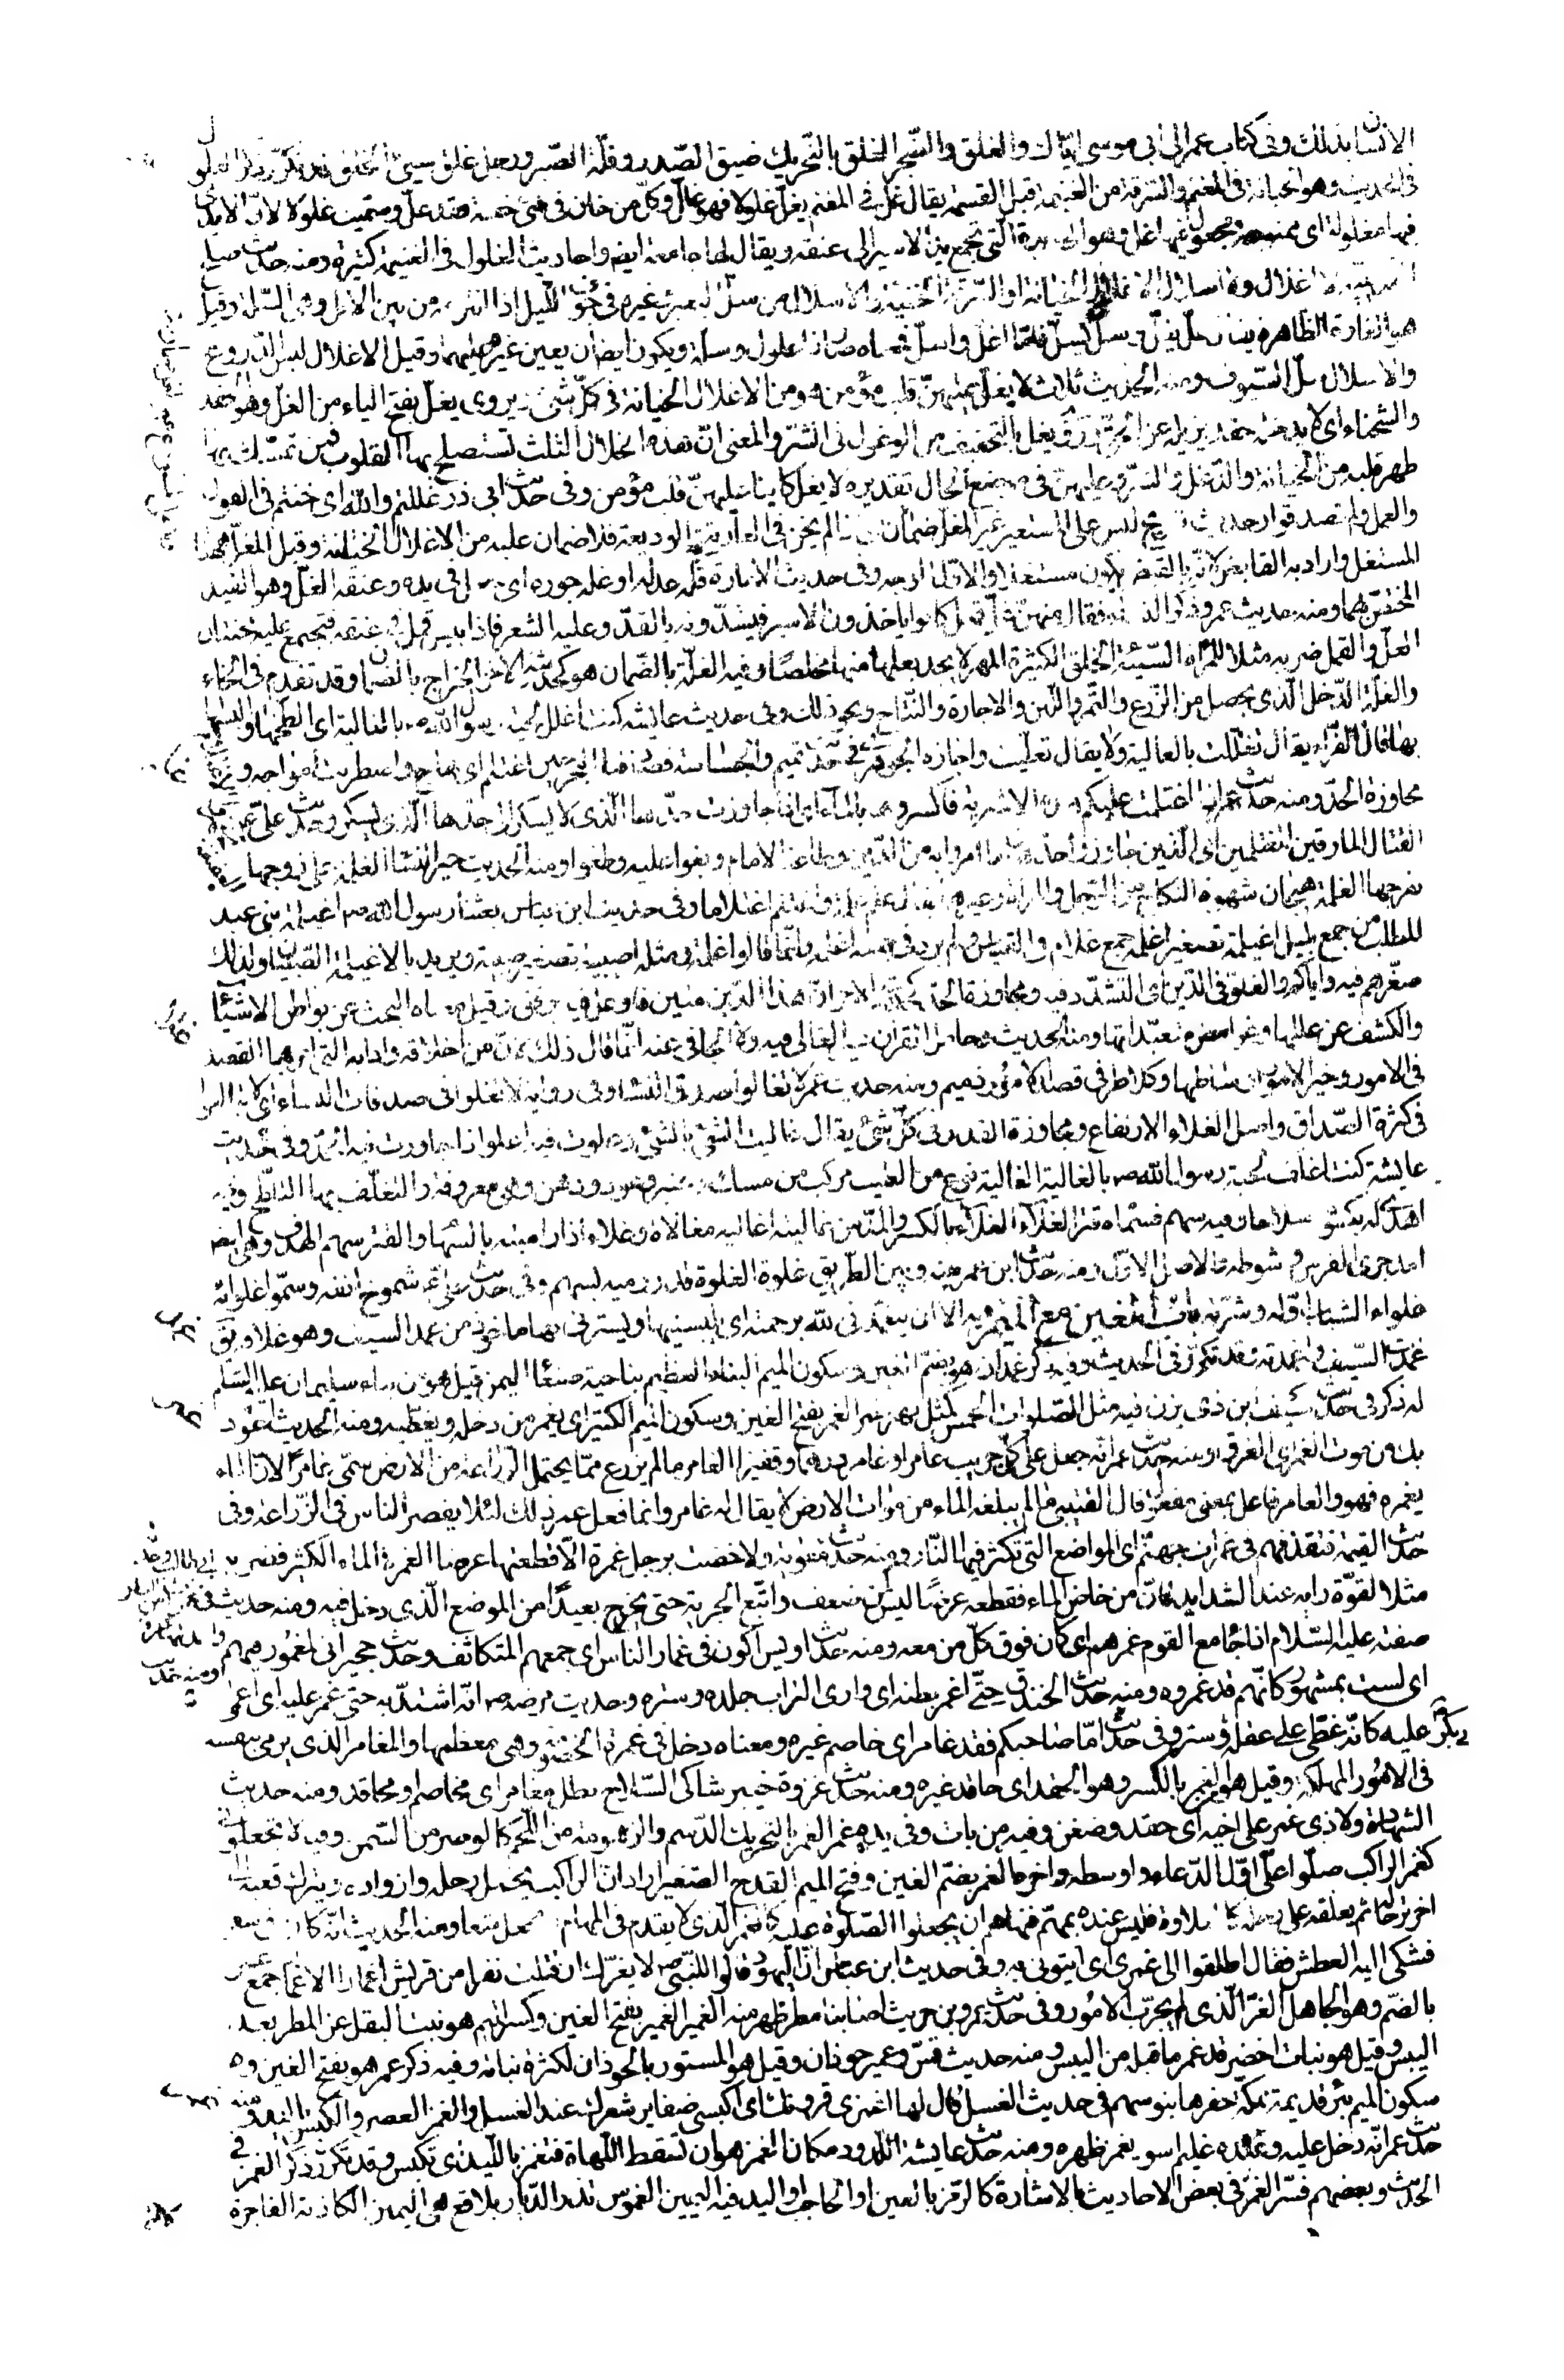 الانسا بذلك وفى كتاب عمر الى ابى موسى اياك والغلق والضجر الغلق بالتحريك ضيق الصدر وقلة الصبر ورجل غلق سيئ الخلق قد تكرر ذكر الغلول
فى الحديث وهو الخيانة فى المغنم والسرقة من الغنيمة قبل القسمة يقال غل فى المغنم يغل غلولا فهو غال وكل من خان فى شئ خفية فقد غل وسميت غلولا لان الايدى
فيها مغلولة اى ممنوعة مجعول فيها غل وهو الحديدة التى تجمع يد الاسير الى عنقه ويقال لها جامعة ايضا واحاديث الغلول فى الغنيمة كثيرة ومنه حديث صلح
الحديبية لا اغلال ولا اسلال الاغلال الخيانة او السرقة الخفية والاسلال من سل البعير وغيره فى جوف الليل اذا انتزعه من بين الابل وهى السلة وقيل
هو الغارة الظاهرة يقال غل يغل وسل يسل فاما اغل واسل فمعناه صار ذا غلول وسلة ويكون ايضا ان يعين غيره عليهما وقيل الاغلال لبس الدروع
والاسلال سل السيوف ومنه الحديث ثلاث لا يغل عليهن قلب مؤمن هو من الاغلال الخيانة فى كل شئ ويروى يغل بفتح الياء من الغل وهو الحقد
والشحناء اى لا يدخله حقد يزيله عن الحق وروى يغل بالتخفيف من الوغول فى الشر والمعنى ان هذه الخلال الثلث تستصلح بها القلوب فمن تمسك بها
طهر قلبه من الخيانة والدغل والشر وعليهن فى موضع الحال تقديره لا يغل كاينا عليهن قلب مؤمن وفى حديث ابى ذر غللتم والله اى خنتم فى القول
والعمل ولم تصدقوا وحديث شريح ليس على المستعير غير المغل ضمان اى اذا لم يخن فى العارية والوديعة فلا ضمان عليه من الاغلال الخيانة وقيل المغل ههنا
المستغل واراد به القابض لانه بالقبض يكون مستغلا والاول الوجه وفى حديث الامارة فكه عدله او غله جوره اى جعل فى يده وعنقه الغل وهو القيد
المختص بهما ومنه حديث عمر وذكر النساء فقال منهن غل قمل كانوا ياخذون الاسير فيشدونه بالقد وعليه الشعر فاذا يبس قمل فى عنقه فتجتمع عليه محنتان
الغل والقمل ضربه مثلا للمرأة السيئة الخلق الكثيرة المهر لا يجد بعلها منها مخلصا وفيه الغلة بالضمان هو كحديثه الاخر الخراج بالضمان وقد تقدم فى الخاء
والغلة الدخل الذى يحصل من الزرع والثمر واللبن والاجارة والنتاج ونحو ذلك وفى حديث عايشة كنت اغلل لحية رسول الله ص بالغالية اى الطخها والبسها
بها قال الفراء يقال تغللت بالغالية ولا يقال تغليت واجازه الجوهرى فى حديث تميم والجساسة فصادفنا البحر حين اغتلم اى هاج واضطربت امواجه
مجاوزة الحد ومنه حديث عمر اذا اغتلمت عليكم هذه الاشربة فاكسروها بالماء اى اذا جاوزت حدها الذى لا يسكر الى حدها الذى يسكر وحديث على
القتال المارقين المغتلمين اى الذين جاوزوا حد ما امروا به من الدين وطاعة الامام وبغوا عليه وطغوا ومنه الحديث خير النساء الغلمة على زوجها
بفرجها الغلمة هيجان شهوة النكاح من الرجل والمرأة وغيرهما يقال غلم غلمة واغتلم اغتلاما وفى حديث ابن عباس بعثنا رسول الله ص اغيلمة بنى عبد
المطلب من جمع بليل اغيلمة تصغير اغلمة جمع غلام والقياس ولم يرد فى جمعه اغلمة وانما قالوا غلمة ومثله اصيبية تصغير صبية ويريد بالاغيلمة الصبيان ولذلك
صغرهم فيه واياكم والغلو فى الدين اى التشدد فيه ومجاوزة الحد كحديثه الاخر ان هذا الدين متين فاوغل فيه برفق وقيل معناه البحث عن بواطن الاشياء
والكشف عن عللها وغوامض متعبداتها ومنه الحديث وحامل القرآن غير الغالى فيه ولا الجافى عنه انما قال ذلك لان من اخلاقه وادابه التى امر بها القصد
فى الامور وخير الامور اوساطها وكلا طرفى قصد الامور ذميم ومنه حديث عمر لا تغالوا صدق النساء وفى رواية لا تغلوا فى صدقات النساء اى لا تبالغوا
فى كثرة الصداق واصل الغلاء الارتفاع ومجاوزة القدر فى كل شئ يقال غاليت الشئ وبالشئ وغلوت فيه اغلو اذا جاوزت فيه الحد وفى حديث
عايشة كنت اغلف لحية رسول الله ص بالغالية الغالية نوع من الطيب مركب من مسك وعنبر وعود ودهن وهى معروفة والتغلف بها التلطخ وفيه
اهدى له يكسوم سلاحا وفيه سهم فسماه قتر الغلاء الغلاء بالكسر والمد من غاليته اغاليه مغالاة وغلاء اذا راميته بالسهام والقتر سهم الهدف وهى ايضا
امد جرى الفرس وشوطه والاصل الاول ومنه حديث ابن عمر بينه وبين الطريق غلوة الغلوة قدر رمية بسهم وفى حديث على شموخ انفه وسمو غلوائه
غلواء الشباب اوله وشرته باب الغين مع الميم فيه الا ان يتغمدنى الله برحمته اى يلبسنيها ويسترنى بها ماخوذ من غمد السيف وهو غلافه يق
غمدت السيف واغمدته وقد تكرر فى الحديث وفيه ذكر غمدان هو بضم الغين وسكون الميم البناء العظيم بناحية صنعاء اليمن قيل هو من بناء سليمان عليه السلم
له ذكر فى حديث سيف بن ذى يزن فيه مثل الصلوات الخمس كمثل نهر غمر الغمر بفتح الغين وسكون الميم الكثير اى يغمر من دخله ويغطيه ومنه الحديث اعوذ
بك من موت الغمر اى الغرق ومنه حديث عمر انه جعل على كل جريب عامر او غامر درهما وقفيزا الغامر ما لم يزرع مما يحتمل الزراعة من الارض سمى غامرا لان الماء
يغمره فهو والغامر فاعل بمعنى مفعول قال القتيبى ما لم يبلغه الماء من موات الارض لا يقال له غامر وانما فعل عمر ذلك لئلا يقصر الناس فى الزراعة وفى
حديث القيمة فيقذفهم فى غمرات جهنم اى المواضع التى تكثر فيها النار ومنه حديث معوية ولا خضت برجل غمرة الا قطعتها عرضا الغمرة الماء الكثير فضربه
مثلا لقوة رايه عند الشدايد فان من خاض الماء فقطعه عرضا ليس كمن ضعف واتبع الجرية حتى يخرج بعيدا من الموضع الذى دخل فيه ومنه حديث فى
صفته عليه السلام اذا جاء مع القوم غمرهم اى كان فوق كل من معه ومنه حديث اويس اكون فى غمار الناس اى جمعهم المتكاثف وحديث حجير انى لمغمور فيهم
اى لست بمشهور كانهم قد غمروه ومنه حديث الخندق حتى اغمر بطنه اى وارى التراب جلده وستره وحديث مرضه ص انه اشتد به حتى غمر عليه اى اغمى
عليه كانه غطى على عقله وستر وفى حديث ابى بكر اما صاحبكم فقد غامر اى خاصم غيره ومعناه دخل فى غمرة الخصومة وهى معظمها والمغامر الذى يرمى بنفسه
فى الامور المهلكة وقيل هو الغمر بالكسر وهو الحقد اى حاقد غيره ومنه حديث غزوة خيبر شاكى السلاح بطل مغامر اى مخاصم او محاقد ومنه حديث
الشهادة ولا ذى غمر على اخيه اى حقد وضغن وفيه من بات وفى يده غمر الغمر بالتحريك الدسم والزهومة من اللحم كالوضر من السمن وفيه لا تجعلونى
كغمر الراكب صلوا على اول الدعاء واوسطه واخره الغمر بضم الغين وفتح الميم القدح الصغير اراد ان الراكب يحمل رحله وازواده ويترك قعبه الى
اخر ترحاله ثم يعلقه على رحله كالعلاوة فليس عنده بمهم فنهاهم ان يجعلوا الصلوة عليه كالغمر الذى لا يقدم فى المهام ويجعل تبعا ومنه الحديث انه كان فى سفر
فشكى اليه العطش فقال اطلقوا الى غمرى اى ايتونى به وفى حديث ابن عباس ان اليهود قالوا للنبى ص لا يغرك ان قتلت نفرا من قريش اغمارا الاغمار جمع غمر
بالضم وهو الجاهل الغر الذى لم يجرب الامور وفى حديث عمرو بن حريث اصابنا مطر ظهر منه الغمير الغمير بفتح الغين وكسر الميم هو نبت البقل عن المطر بعد
اليبس وقيل هو نبات اخضر قد غمر ما قبله من اليبس ومنه حديث قس وغمير حوذان وقيل هو المستور بالحوذان لكثرة نباته وفيه ذكر غمر هو بفتح الغين و
سكون الميم بئر قديمة بمكة حفرها بنو سهم فى حديث الغسل قال لها اغمزى قرونك اى اكبسى ضفاير شعرك عند الغسل والغمز العصر والكبس باليد ومنه
حديث عمر انه دخل عليه وعنده غليم اسود يغمز ظهره ومنه حديث عايشة اللدود مكان الغمز هو ان تسقط اللهاة فتغمز باليد اى تكبس وقد تكرر ذكر الغمز فى
الحديث وبعضهم فسر الغمز فى بعض الاحاديث بالاشارة كالرمز بالعين او الحاجب او اليد فيه اليمين الغموس تذر الديار بلاقع هى اليمين الكاذبة الفاجرة